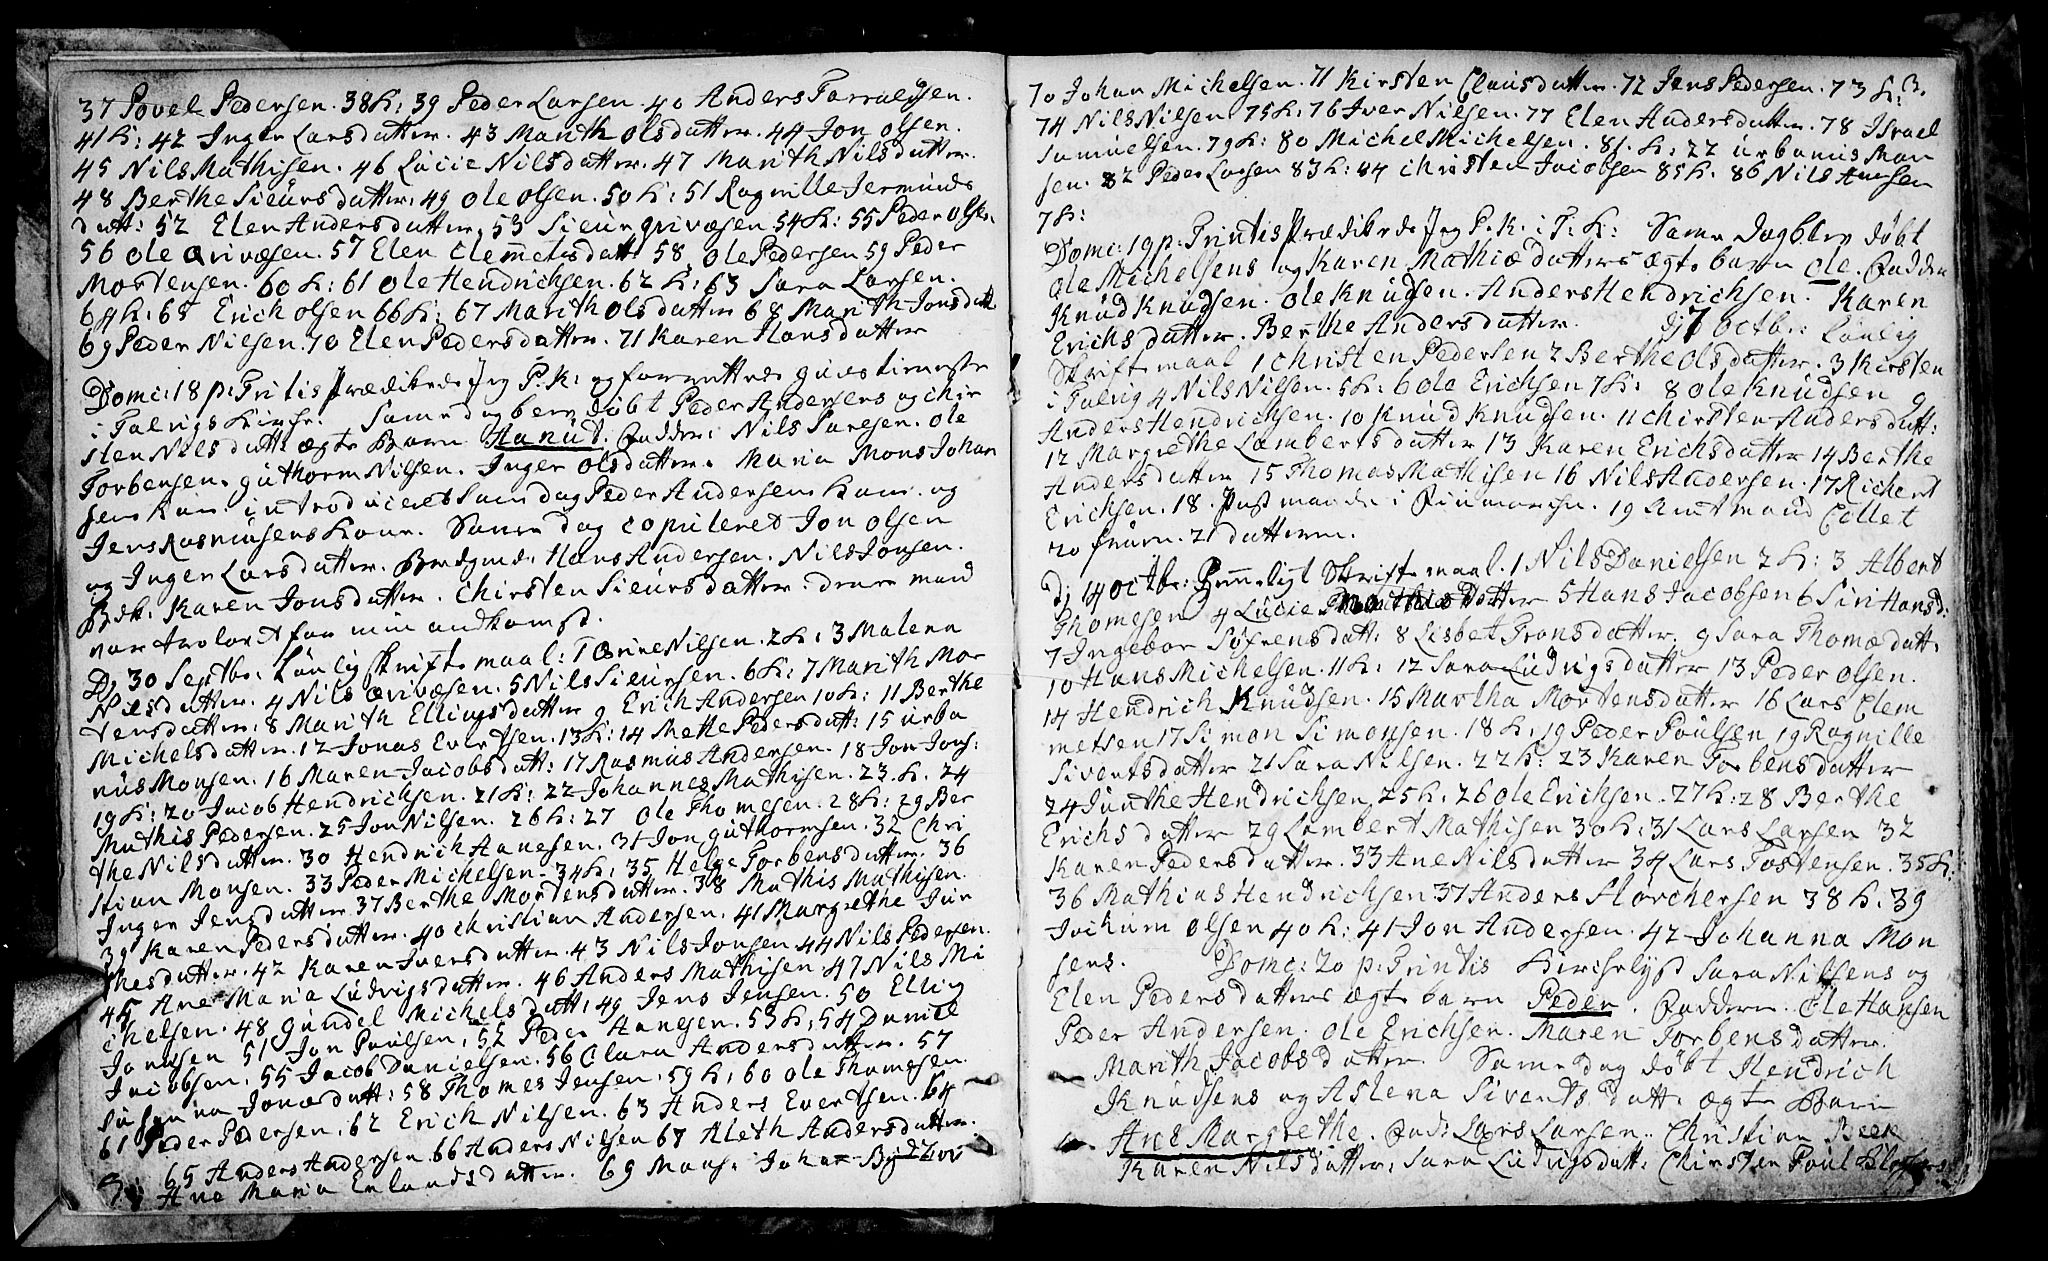 37 Povel Pedersen. 38 K: 39 Peder Larsen. 40 Anders Tarraldsen.
41 K: 42 Inger Larsdatter. 43 Marith Olsdatter. 44 Jon Olsen.
45 Nils Mathisen. 46 Lucie Nilsdatter. 47 Marith Nilsdatter.
48 Berthe Sieursdatter. 49 Ole Olsen. 50 K: 51 Ragnille Jermunds
datt: 52 Elen Andersdatter. 53 Sieur qvivæsen 54 K: 55 Peder Olsen.
56 Ole Qvivæsen. 57 Elen Clemmetsdatt 58 Ole Pedersen 59 Peder
Mortensen. 60 K: 61 Ole Hendrichsen. 62 K: 63 Sara Larsen.
64 K: 65 Erich Olsen 66 K: 67 Marith Olsdatter 68 Marith Jonsdatt
69 Peder Nielsen. 70 Elen Pedersdatter. 71 Karen Hansdatter
Domc: 18 p: Trintis Prædikede Jeg P. K: og forrettede giestieneste
i Talvigs Kirche. Same dag blev døbt Peder Andersens og Chir
sten Nilsdatt: ægte Barn Hanut. Fadder: Nils Paresen. Ole
Torbensen. Guthorm Nilsen. Inger Olsdatter. Maria Mons Johan
sens Kone. introduceret Same dag Peder Andersens Kone. og
Jens Rasmusens Kone. Same dag copuleret Jon Olsen
og Inger Larsdatter. Brudgmd: Hans Andersen. Nils Jonsen.
Brdk: Karen Jonsdatter. Chirsten Sieursdatter. denne mand
var trolovet før min ankomst.
D: 30 Septbr: Lønlig skriftemaal: 1 Nilsen. 2 K: 3 Malena
Nilsdatter. 4 Nils Qvivæsen. 5 Nils Sieursen. 6 K: 7 Marith Mor
tensdatter: 8 Marith Ellingsdatter 9 Erich Andersen 10 K: 11 Berthe
Michelsdatter. 12 Jonas Evertsen. 13 K: 14 Mette Pedersdatt: 15 Urba
nus Monsen. 16 Maren Jacobsdatt: 17 Rasmus Andersen. 18 Jon Jons:
19 K: 20 Jacob Hendrichsen. 21 K: 22 Johannes Mathisen. 23. K. 24
Mathis Pedersen. 25 Jon Nilsen. 26 K: 27 Ole Thomesen. 28 K: 29 Ber
the Nilsdatter. 30 Hendrich Hanesen. 31 Jon Guthormsen. 32 Chri
stian Monsen. 33 Peder Michelsen. 34 K: 35 Helge Torbensdatter. 36
Inger Jensdatter. 37 Berthe Mortensdatter. 38 Mathis Mathisen.
39 Karen Pedersdatter. 40 Christian Andersen. 41 Margrethe Jür
thesdatter. 42 Karen Iversdatter. 43 Nils Jonsen 44 Nils Pedersen.
45 Ane Maria Ludvigsdatter. 46 Anders Mathisen. 47 Nils Mi
chelsen. 48 Gundel Michelsdatt: 49 Jens Jensen. 50 Ellig
Jonsen 51 Jon Poulsen. 52 Peder Hanesen. 53 K: 54 Daniel
Jacobsen. 55 Jacob Danielsen. 56 Clara Andersdatter. 57
Susanna Jonædatt: 58 Thomes Jensen. 59 K: 60 Ole Thomesen.
61 Peder Pedersen. 62 Erich Nilsen. 63 Anders Evertsen. 64
65 Anders Andersen 66 Anders Nilsen 67 Aleth Andersdatter.
Ane Maria Erlandsdatter. 69 Mons: Johan
70 Johan Michelsen. 71 Kirsten Clausdatter. 72 Jens Pedersen. 73 K:
74 Nils Nilsen 75 K: 76 Iver Nilsen. 77 Elen Andersdatter. 78 Israel
Samuelsen. 79 K: 80 Michel Michelsen. 81. K: 22 Urbanus Mon
sen. 82 Peder Larsen 83 K: 84 Christen Jacobsen 85 K. 86 Nils Hansen
7 K:
Domc: 19 p: Trintis Prædikede Jeg P. K. i T: K: Same Dag blev døbt
Ole Michelsens og Karen Mathiædatters ægte barn Ole. Fadder
Knud Knudsen. Ole Knudsen. Anders Hendrichsen. Karen
Erichsdatter. Berthe Andersdatter. Dj 7 Octb: Lønlig
Skriftemaal 1 Christen Pedersen 2 Berthe Olsdatter. 3 Kirsten
i Talvig 4 Nils Nilsen. 5 K: 6 Ole Erichsen 7 K: 8 Ole Knudsen 9
Anders Hendrichsen. 10 Knud Knudsen. 11 Chirsten Andersdatt:
12 Margrethe Lambertsdatter 13 Karen Erichsdatter 14 Berthe
Andersdatter 15 Thomas Mathisen 16 Nils Andersen. 17 Richert
Erichsen. 18. i Finmarchen. 19 Amtmand Collet
20 fruen. 21 datteren.
D: 14 octbr: Hemmeligt Skriftemaal. 1 Nils Danielsen 2 K: 3 Albert
Thomesen 4 Lucie Mathisdatter 5 Hans Jacobsen 6 Siri Hansd:
7 Ingebor Sørensdatt: 8 Lisbet Tronsdatter. 9 Sara Thomædatt:
10 Hans Michelsen. 11 K: 12 Sara Ludvigsdatter 13 Peder Olsen.
14 Hendrich Knudsen. 15 Martha Mortensdatter 16 Lars Clem
metsen 17 Simon Simonsen. 18 K: 19 Peder Poulsen 19 Ragnille
Siventsdatter 21 Sara Nilsen. 22 K: 23 Karen Torbensdatter
24 Junthe Hendrichsen 25 K: 26 Ole Erichsen. 27 K: 28 Berthe
Erichsdatter 29 Lambert Mathisen 30 K: 31 Lars Larsen 32
Karen Pedersdatter. 33 Ane Nilsdatter 34 Lars Tostensen. 35 K:
36 Mathias Hendrichsen 37 Anders Storchersen 38 K: 39
Jochum Olsen 40 K: 41 Jon Andersen. 42 Johanna Mon
sens. Domc: 20 p: Trintis Sara Nilsens og
Elen Pedersdatters ægte barn Peder. Faddere. Ole Hansen
Peder Andersen. Ole Erichsen. Maren Torbensdatter.
Marith Jacobsdatter. Same dag døbt Hendrich
Knudsens og Astena Siventsdatt: ægte Barn
Ane Margrethe. Fad: Lars Larsen. Christian Beck
Karen Nilsdatter. Sara Ludvigsdatt: Chirsten Poul